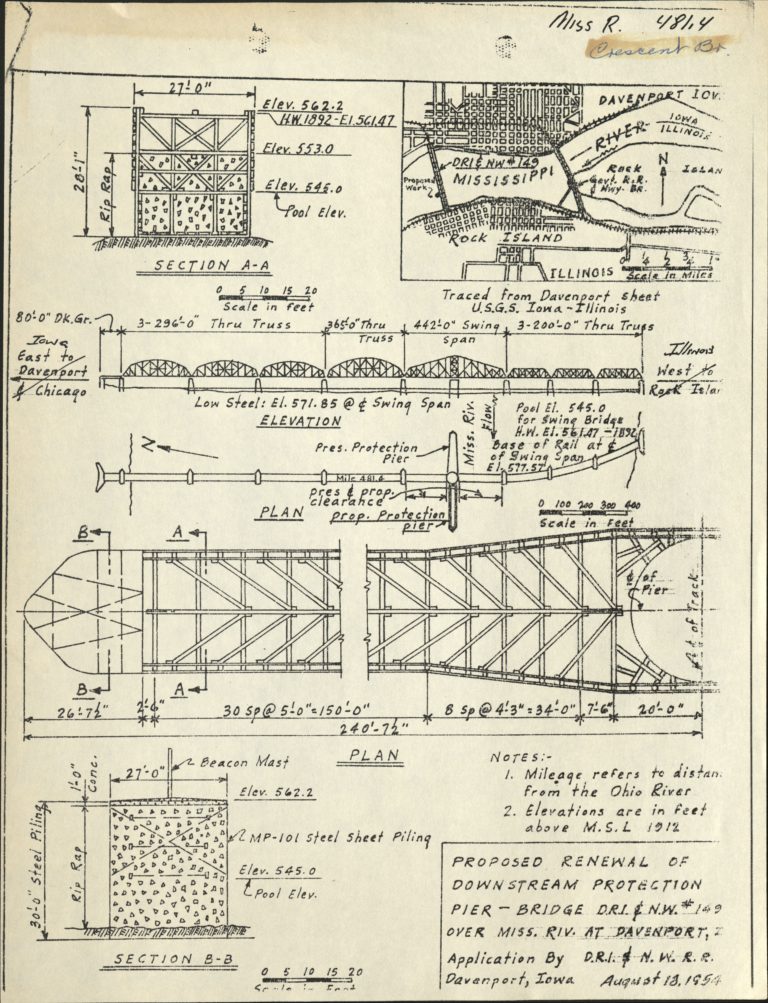 Miss R. 481.4
Crescent Br.
27'-0"
Elev. 562.2
H.W. 1892-El. 561.47
Elev. 553.0
Elev. 545.0
Pool Elev.
28'-1"
Rip Rap
SECTION A-A
0 5 10 15 20
Scale in feet
DAVENPORT IOW.
IOWA
ILLINOIS
RIVER
DRI & NW #149
MISSISSIPPI
Proposed
Work
ROCK ISLAN
Govt. R.R.
& Hwy. Br.
N
ROCK ISLAND
ILLINOIS
0 1/4 1/2 3/4 1
Scale in Miles
Traced from Davenport sheet
U.S.G.S. Iowa-Illinois
80'-0" DK.Gr.
3-296'-0" Thru Truss
365'-0" Thru
Truss
442'-0" Swing
span
3-200'-0" Thru Truss
Iowa
East to
Davenport
& Chicago
Illinois
West to
Rock Islan
Low Steel: El. 571.85 @ ℄ Swing Span
ELEVATION
Miss. Riv.
Flow
Pool El. 545.0
for Swing Bridge
H.W. El. 561.47-1892
Base of Rail at ℄
of Swing Span
El. 577.57
N
Pres. Protection
Pier
Mile 481.4
pres & prop.
clearance
prop. Protection
pier
PLAN
0 100 200 300 400
Scale in Feet
B
A
℄ of
Pier
℄ of Track
B
A
26'-7½"
2'-6"
30 Sp @ 5'-0"=150'-0"
8 Sp @ 4'-3"=34'-0"
7'-6"
20'-0"
240'-7½"
PLAN
Beacon Mast
27'-0"
1'-0"
Conc.
Elev. 562.2
MP-101 Steel Sheet Piling
Elev. 545.0
Pool Elev.
30'-0" Steel Piling
Rip Rap
SECTION B-B
0 5 10 15 20
Scale in Feet
NOTES:-
1. Mileage refers to distan
from the Ohio River
2. Elevations are in feet
above M.S.L 1912
PROPOSED RENEWAL OF
DOWNSTREAM PROTECTION
PIER - BRIDGE D.R.I. & N.W. #149
OVER MISS. RIV. AT DAVENPORT, I
Application By D.R.I. & N.W. R.R.
Davenport, Iowa August 13, 1954